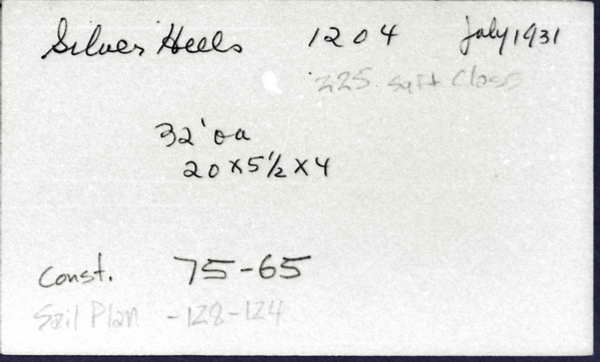 Silver Heels 1204 July 1931
225 sqft Class
32' oa
20 x 5 1/2 x 4
Const. 75-65
Sail Plan -128-124